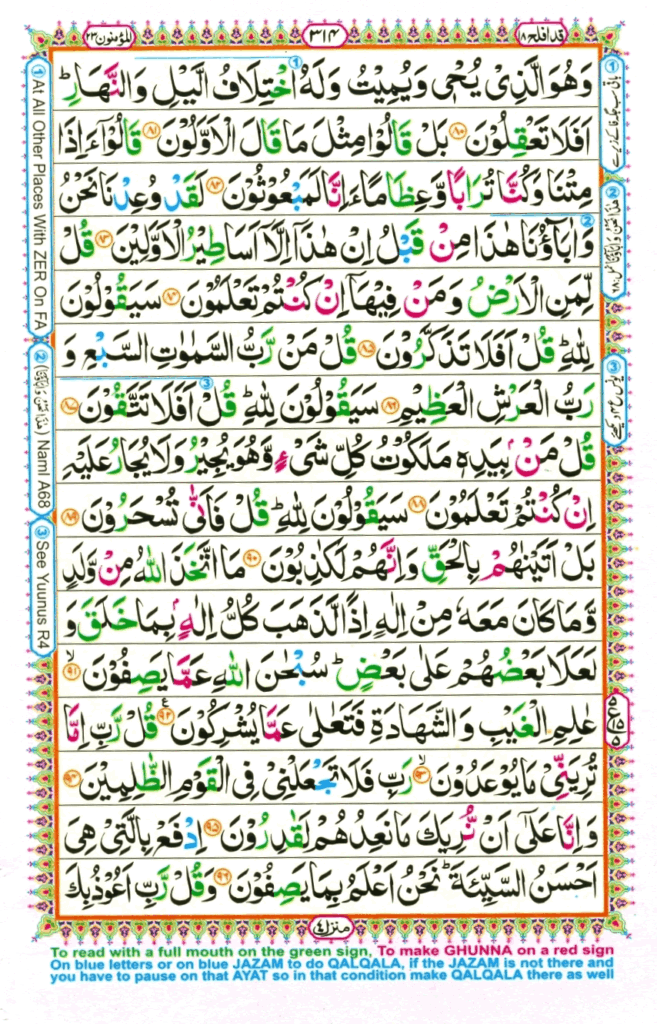 قد افلح ١٨
٣١٤
المؤمنون ٢٣
وَهُوَ الَّذِیْ یُحْیٖ وَیُمِیْتُ وَلَهُ اخْتِلَافُ الَّیْلِ وَالنَّهَارِ ؕ
اَفَلَا تَعْقِلُوْنَ ﴿۸۰﴾ بَلْ قَالُوْا مِثْلَ مَا قَالَ الْاَوَّلُوْنَ ﴿۸۱﴾ قَالُوْۤا ءَاِذَا
مِتْنَا وَكُنَّا تُرَابًا وَّعِظَامًا ءَاِنَّا لَمَبْعُوْثُوْنَ ﴿۸۲﴾ لَقَدْ وُعِدْنَا نَحْنُ
وَاٰبَآؤُنَا هٰذَا مِنْ قَبْلُ اِنْ هٰذَاۤ اِلَّاۤ اَسَاطِیْرُ الْاَوَّلِیْنَ ﴿۸۳﴾ قُلْ
لِّمَنِ الْاَرْضُ وَمَنْ فِیْهَاۤ اِنْ كُنْتُمْ تَعْلَمُوْنَ ﴿۸۴﴾ سَیَقُوْلُوْنَ
لِلّٰهِ ؕ قُلْ اَفَلَا تَذَكَّرُوْنَ ﴿۸۵﴾ قُلْ مَنْ رَّبُّ السَّمٰوٰتِ السَّبْعِ وَ
رَبُّ الْعَرْشِ الْعَظِیْمِ ﴿۸۶﴾ سَیَقُوْلُوْنَ لِلّٰهِ ؕ قُلْ اَفَلَا تَتَّقُوْنَ ﴿۸۷﴾
قُلْ مَنْۢ بِیَدِهٖ مَلَكُوْتُ كُلِّ شَیْءٍ وَّهُوَ یُجِیْرُ وَلَا یُجَارُ عَلَیْهِ
اِنْ كُنْتُمْ تَعْلَمُوْنَ ﴿۸۸﴾ سَیَقُوْلُوْنَ لِلّٰهِ ؕ قُلْ فَاَنّٰی تُسْحَرُوْنَ ﴿۸۹﴾
بَلْ اَتَیْنٰهُمْ بِالْحَقِّ وَاِنَّهُمْ لَكٰذِبُوْنَ ﴿۹۰﴾ مَا اتَّخَذَ اللّٰهُ مِنْ وَّلَدٍ
وَّمَا كَانَ مَعَهٗ مِنْ اِلٰهٍ اِذًا لَّذَهَبَ كُلُّ اِلٰهٍۭ بِمَا خَلَقَ وَ
لَعَلَا بَعْضُهُمْ عَلٰی بَعْضٍ ؕ سُبْحٰنَ اللّٰهِ عَمَّا یَصِفُوْنَ ﴿۹۱﴾ۙ
عٰلِمِ الْغَیْبِ وَالشَّهَادَةِ فَتَعٰلٰی عَمَّا یُشْرِكُوْنَ ﴿۹۲﴾ قُلْ رَّبِّ اِمَّا
تُرِیَنِّیْ مَا یُوْعَدُوْنَ ﴿۹۳﴾ۙ رَبِّ فَلَا تَجْعَلْنِیْ فِی الْقَوْمِ الظّٰلِمِیْنَ ﴿۹۴﴾
وَاِنَّا عَلٰۤی اَنْ نُّرِیَكَ مَا نَعِدُهُمْ لَقٰدِرُوْنَ ﴿۹۵﴾ اِدْفَعْ بِالَّتِیْ هِیَ
اَحْسَنُ السَّیِّئَةَ ؕ نَحْنُ اَعْلَمُ بِمَا یَصِفُوْنَ ﴿۹۶﴾ وَقُلْ رَّبِّ اَعُوْذُ بِكَ
منزل ٤
① At All Other Places With ZER On FA
② Naml A68
③ See Yuunus R4
To read with a full mouth on the green sign, To make GHUNNA on a red sign
On blue letters or on blue JAZAM to do QALQALA, if the JAZAM is not there and
you have to pause on that AYAT so in that condition make QALQALA there as well